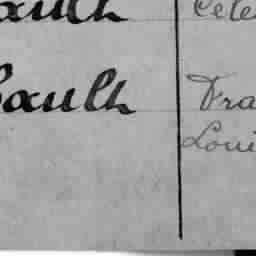 aulh Cele
Gaulh Fra
Loui